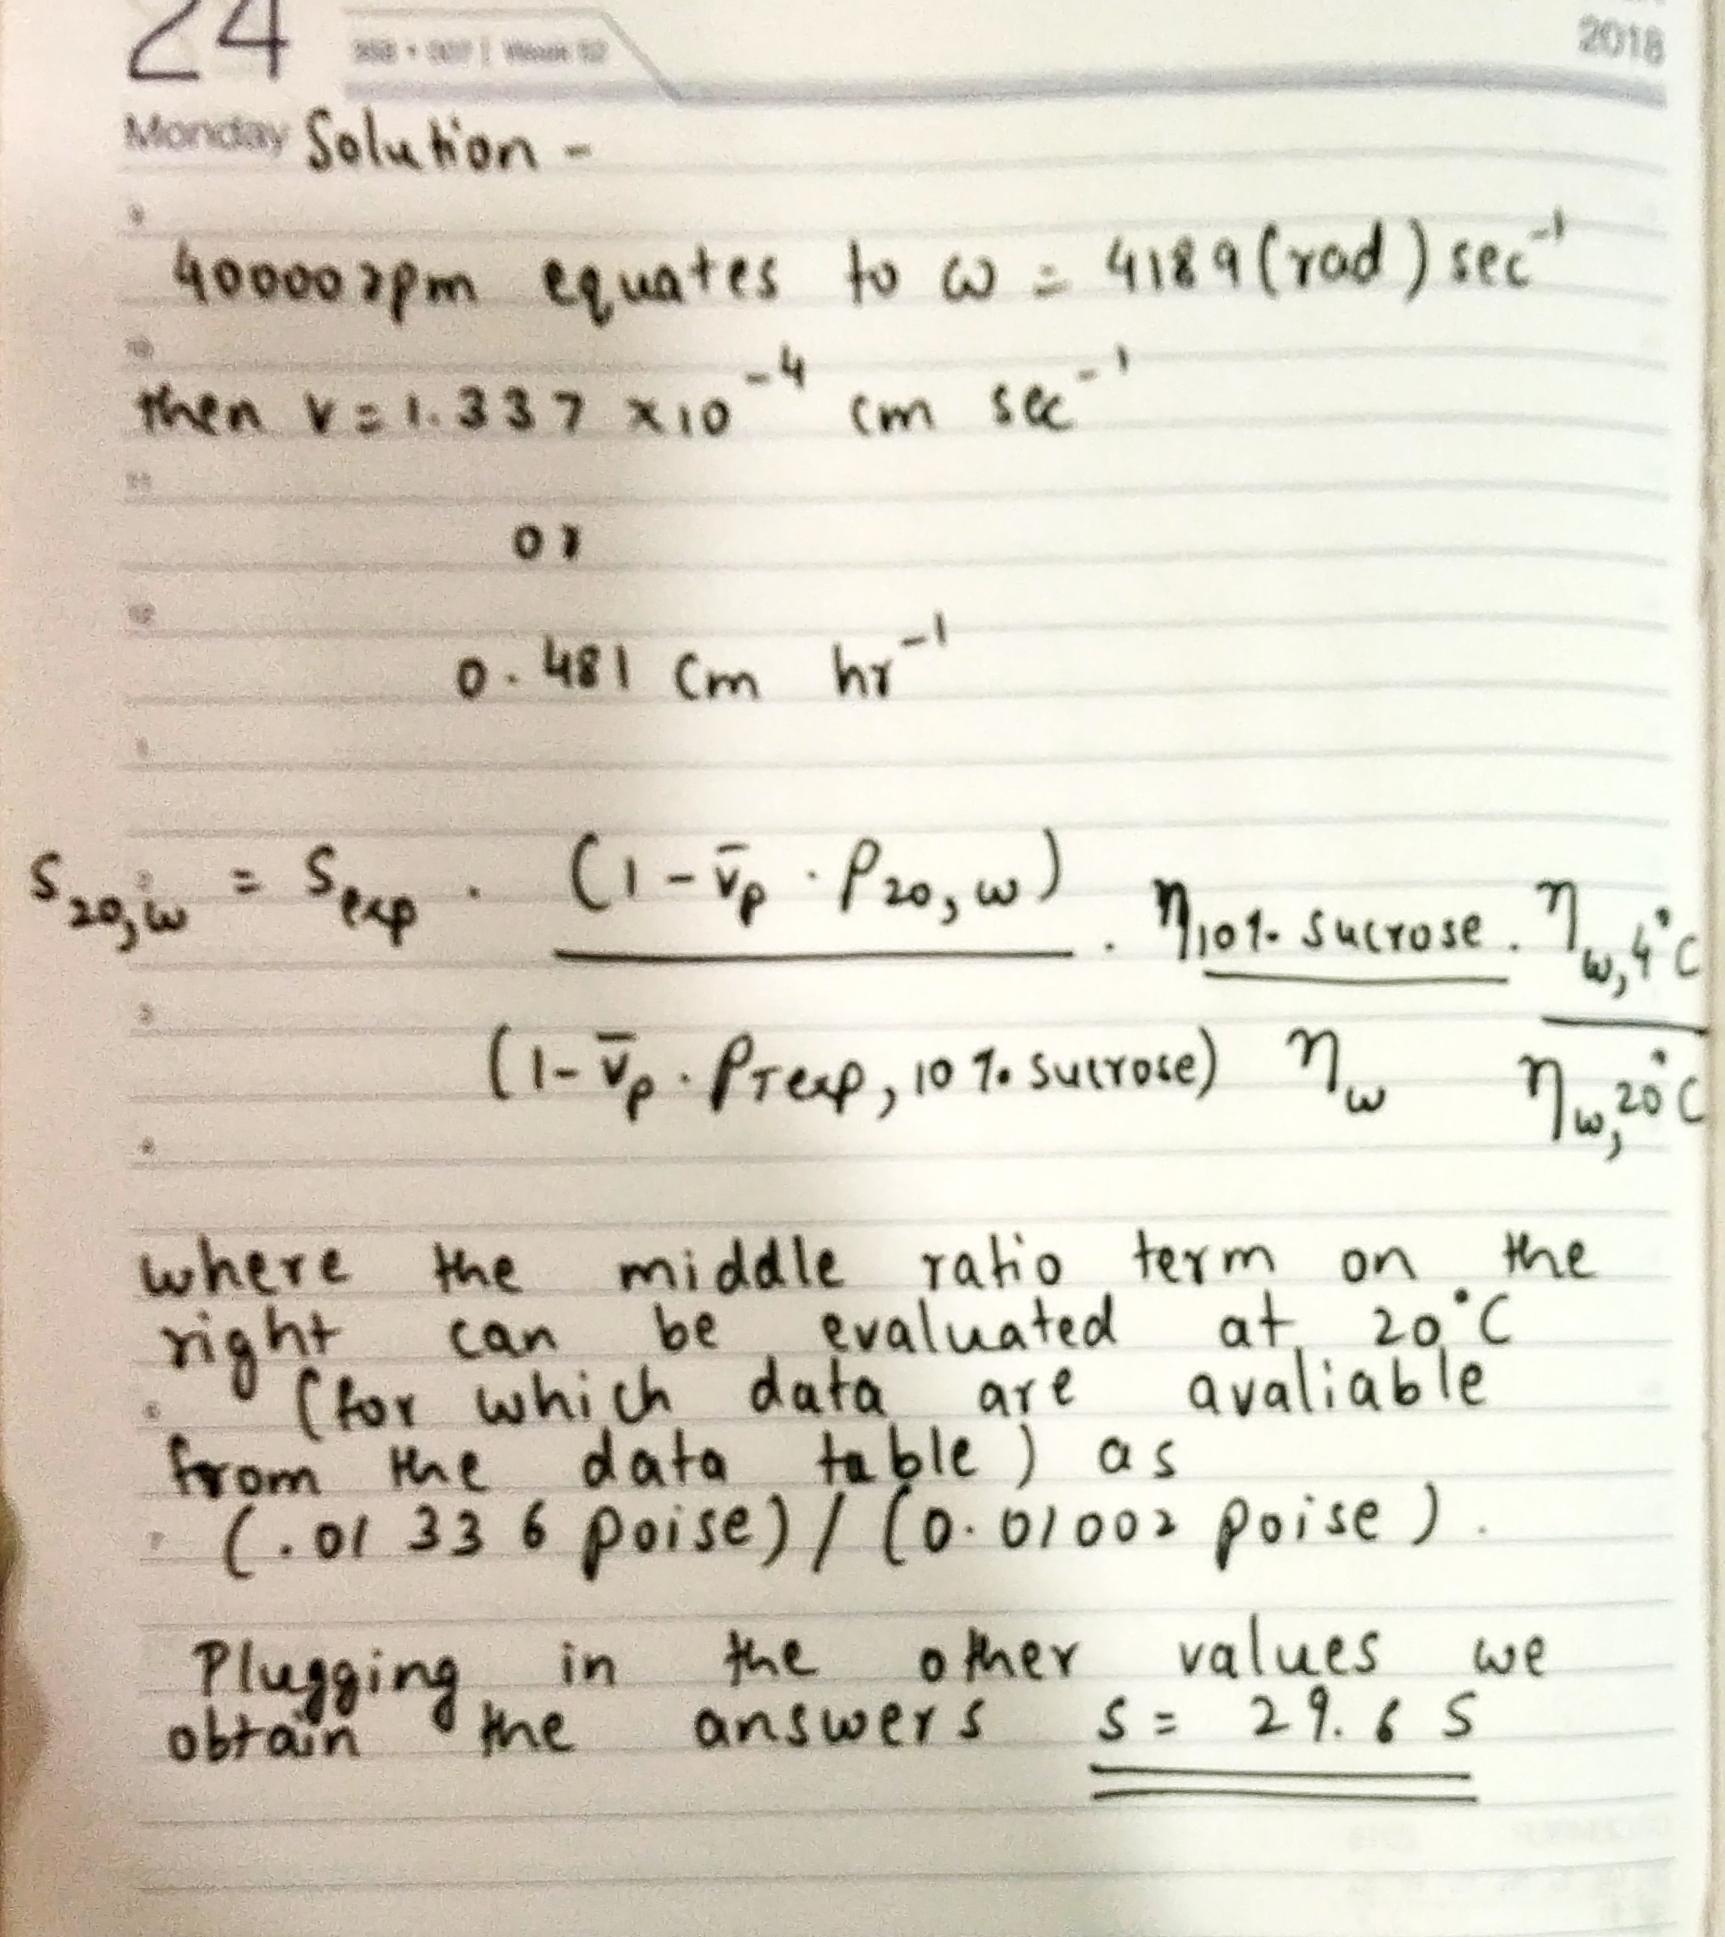 24
2018
Monday Solution -
40000 rpm equates to ω = 4189 (rad) sec⁻¹
then v = 1.337 × 10⁻⁴ cm sec⁻¹
or
0.481 cm hr⁻¹
S₂₀,w = S_exp · (1 - v̄_p · ρ₂₀,w) / (1 - v̄_p · ρ_Texp, 10% sucrose) · η_10% sucrose / η_w · η_w,4°C / η_w,20°C
where the middle ratio term on the
right can be evaluated at 20°C
(for which data are avaliable
from the data table) as
(.01336 poise) / (0.01002 poise).
Plugging in the other values we
obtain the answers s = 29.6 S